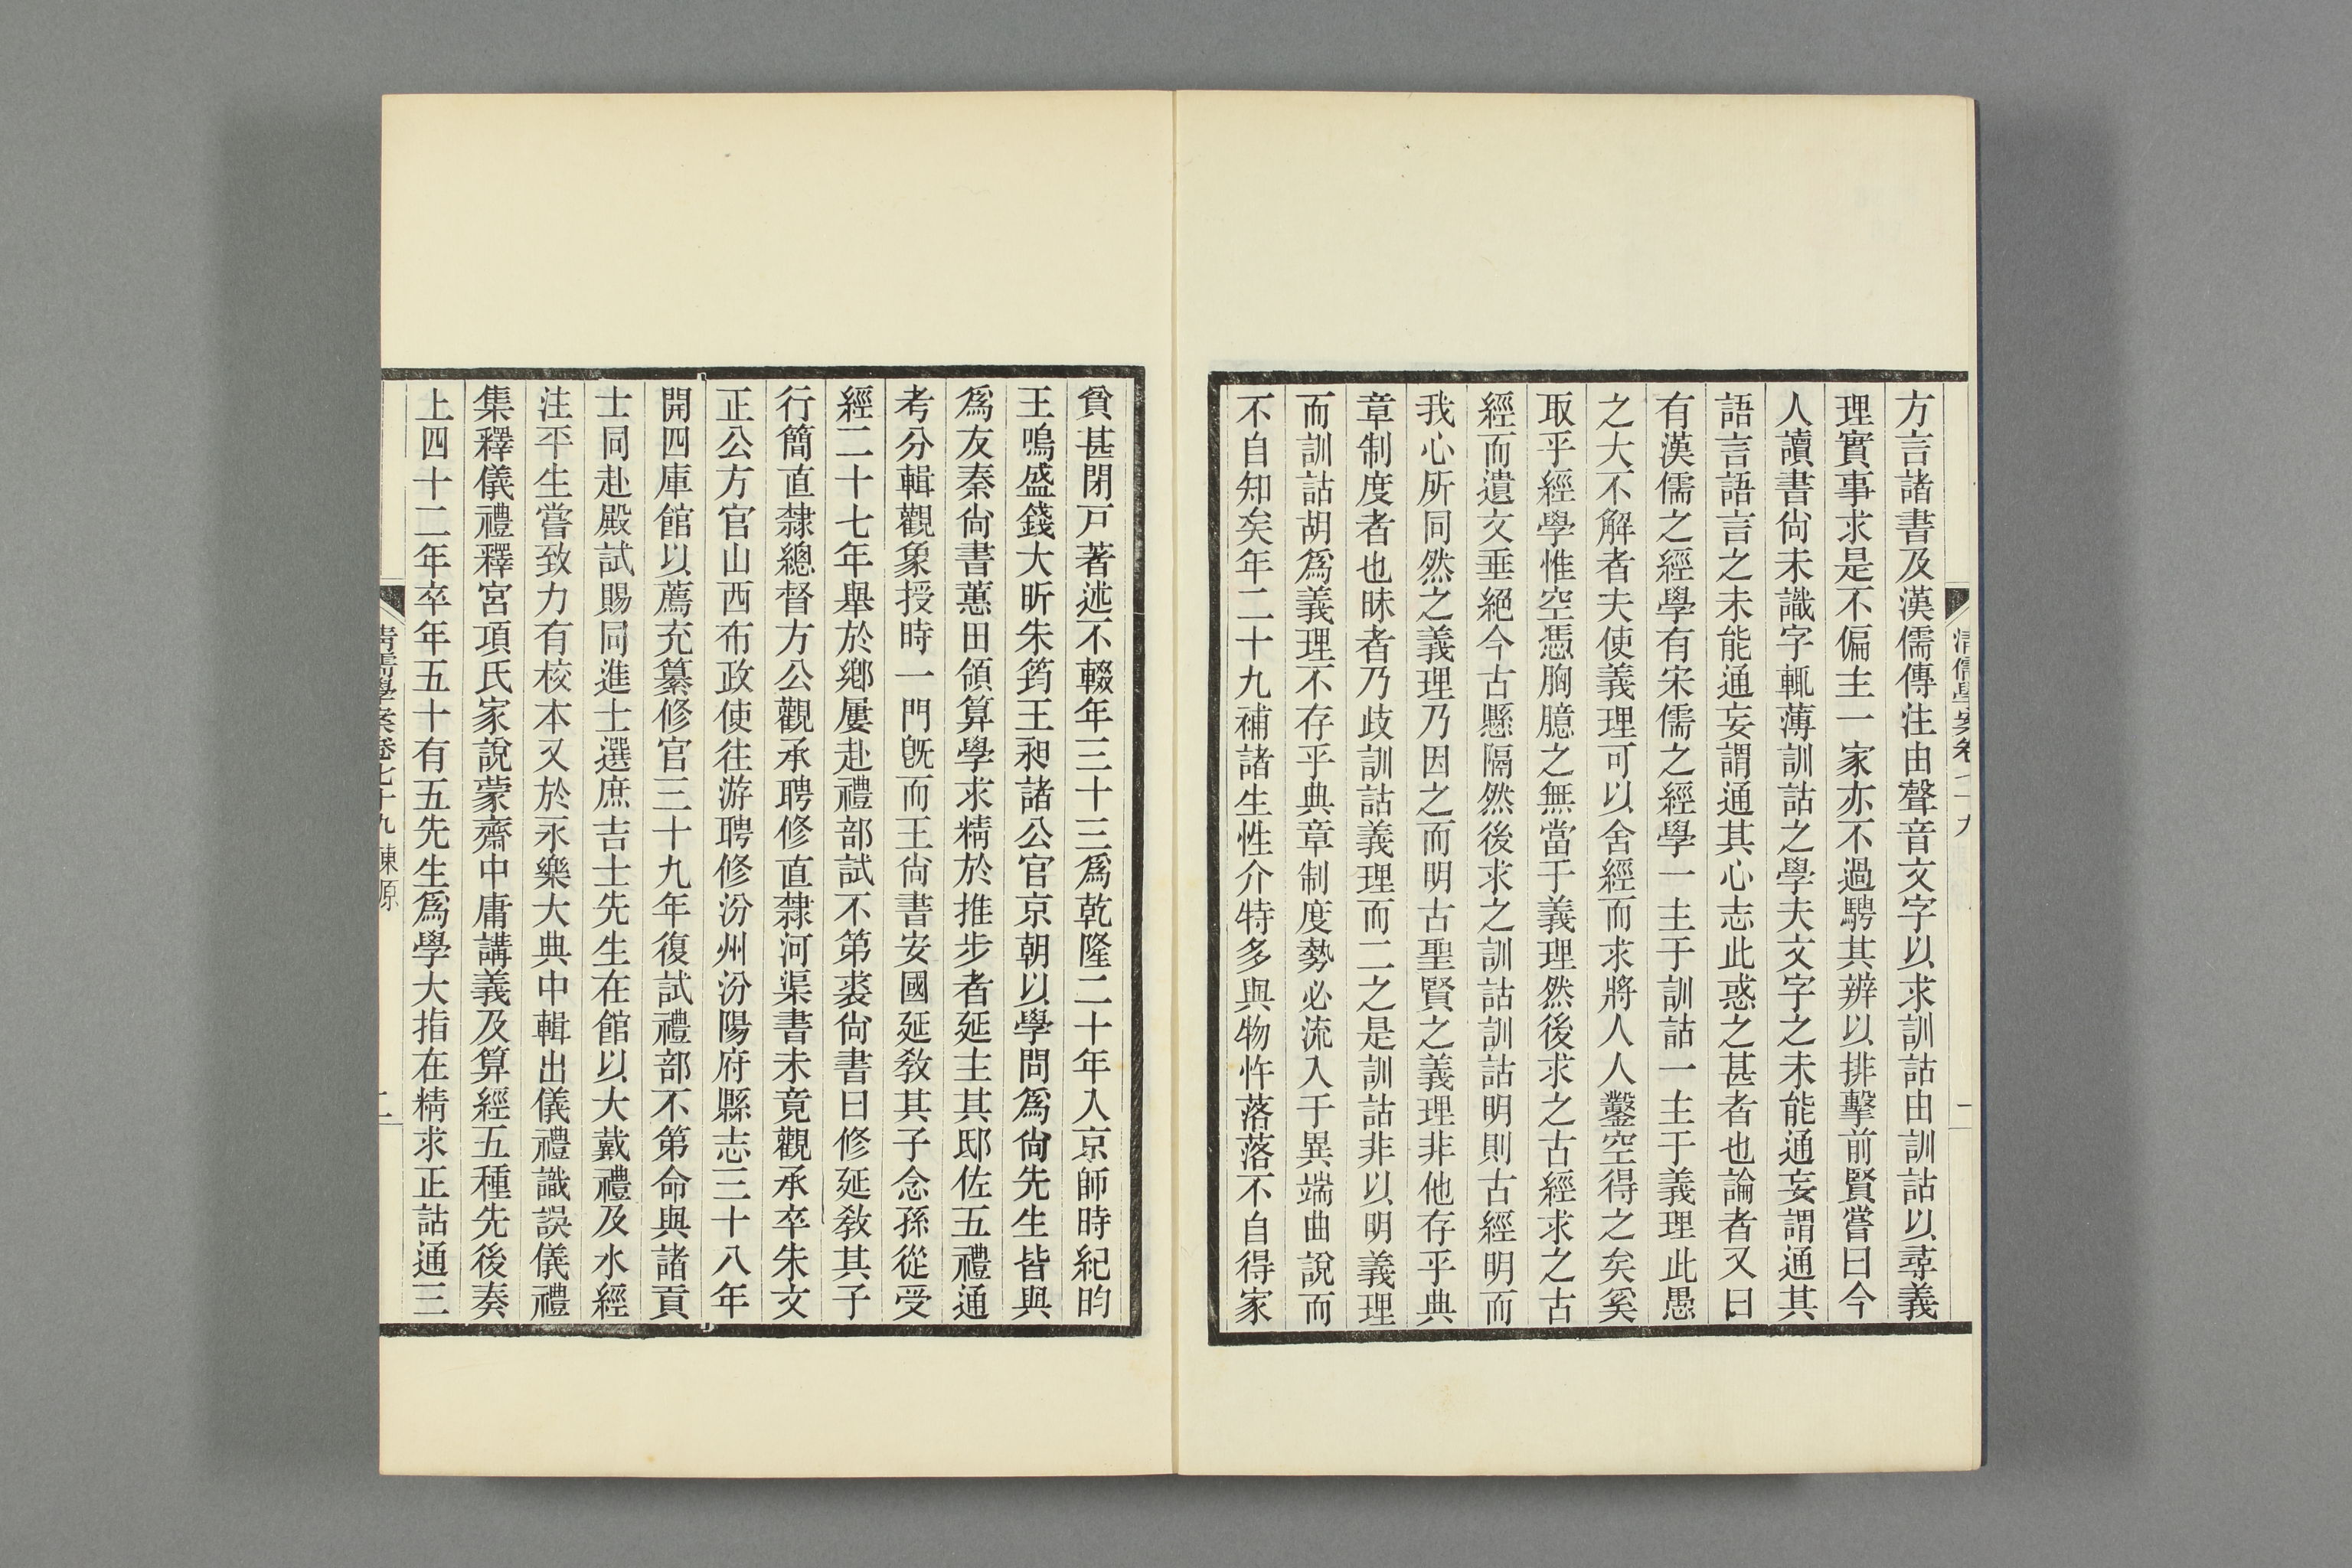 清儒學案卷七十九
一
方言諸書及漢儒傳注由聲音文字以求訓詁由訓詁以尋義
理實事求是不偏主一家亦不過騁其辨以排擊前賢嘗曰今
人讀書尙未識字輒薄訓詁之學夫文字之未能通妄謂通其
語言語言之未能通妄謂通其心志此惑之甚者也論者又曰
有漢儒之經學有宋儒之經學一主于訓詁一主于義理此愚
之大不解者夫使義理可以舍經而求將人人鑿空得之矣奚
取乎經學惟空憑胸臆之無當于義理然後求之古經求之古
經而遺文垂絕今古懸隔然後求之訓詁訓詁明則古經明而
我心所同然之義理乃因之而明古聖賢之義理非他存乎典
章制度者也昧者乃歧訓詁義理而二之是訓詁非以明義理
而訓詁胡爲義理不存乎典章制度勢必流入于異端曲說而
不自知矣年二十九補諸生性介特多與物忤落落不自得家
貧甚閉戸著述不輟年三十三爲乾隆二十年入京師時紀昀
王鳴盛錢大昕朱筠王昶諸公官京朝以學問爲尙先生皆與
爲友秦尙書蕙田領算學求精於推步者延主其邸佐五禮通
考分輯觀象授時一門旣而王尙書安國延敎其子念孫從受
經二十七年舉於鄉屢赴禮部試不第裘尙書曰修延敎其子
行簡直隸總督方公觀承聘修直隸河渠書未竟觀承卒朱文
正公方官山西布政使往游聘修汾州汾陽府縣志三十八年
開四庫館以薦充纂修官三十九年復試禮部不第命與諸貢
士同赴殿試賜同進士選庶吉士先生在館以大戴禮及水經
注平生嘗致力有校本又於永樂大典中輯出儀禮識誤儀禮
集釋儀禮釋宮項氏家說蒙齋中庸講義及算經五種先後奏
上四十二年卒年五十有五先生爲學大指在精求正詁通三
清儒學案卷七十九 東原
二